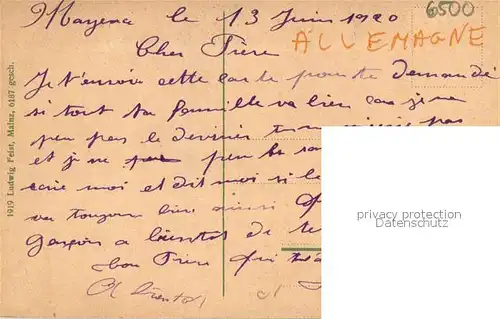 Mayence le 13 Juin 1920
6500
ALLEMAGNE
Cher Frère
Je t'envoie cette carte pour te demandé
si tout ta famille va bien car je ne
peu pas le deviner
et je ne peu le
moi et dit moi si le
va toujours bien ainsi
garçon a bientot de te
bon Frère qui
A bientot
1919 Ludwig Feist, Mainz, 6187 gesch.
privacy protection
Datenschutz